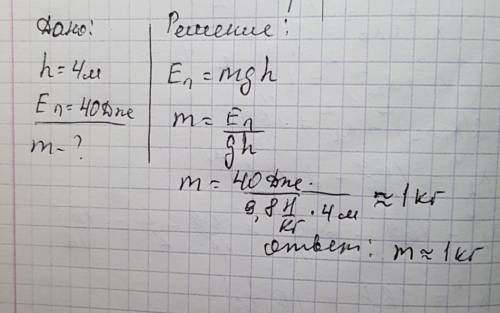 Дано:
h = 4м
Eп = 40Дж
m - ?
Решение:
Eп = mgh
m = Eп / gh
m = 40Дж / 9,8 Н/кг · 4м ≈ 1кг
ответ: m ≈ 1кг